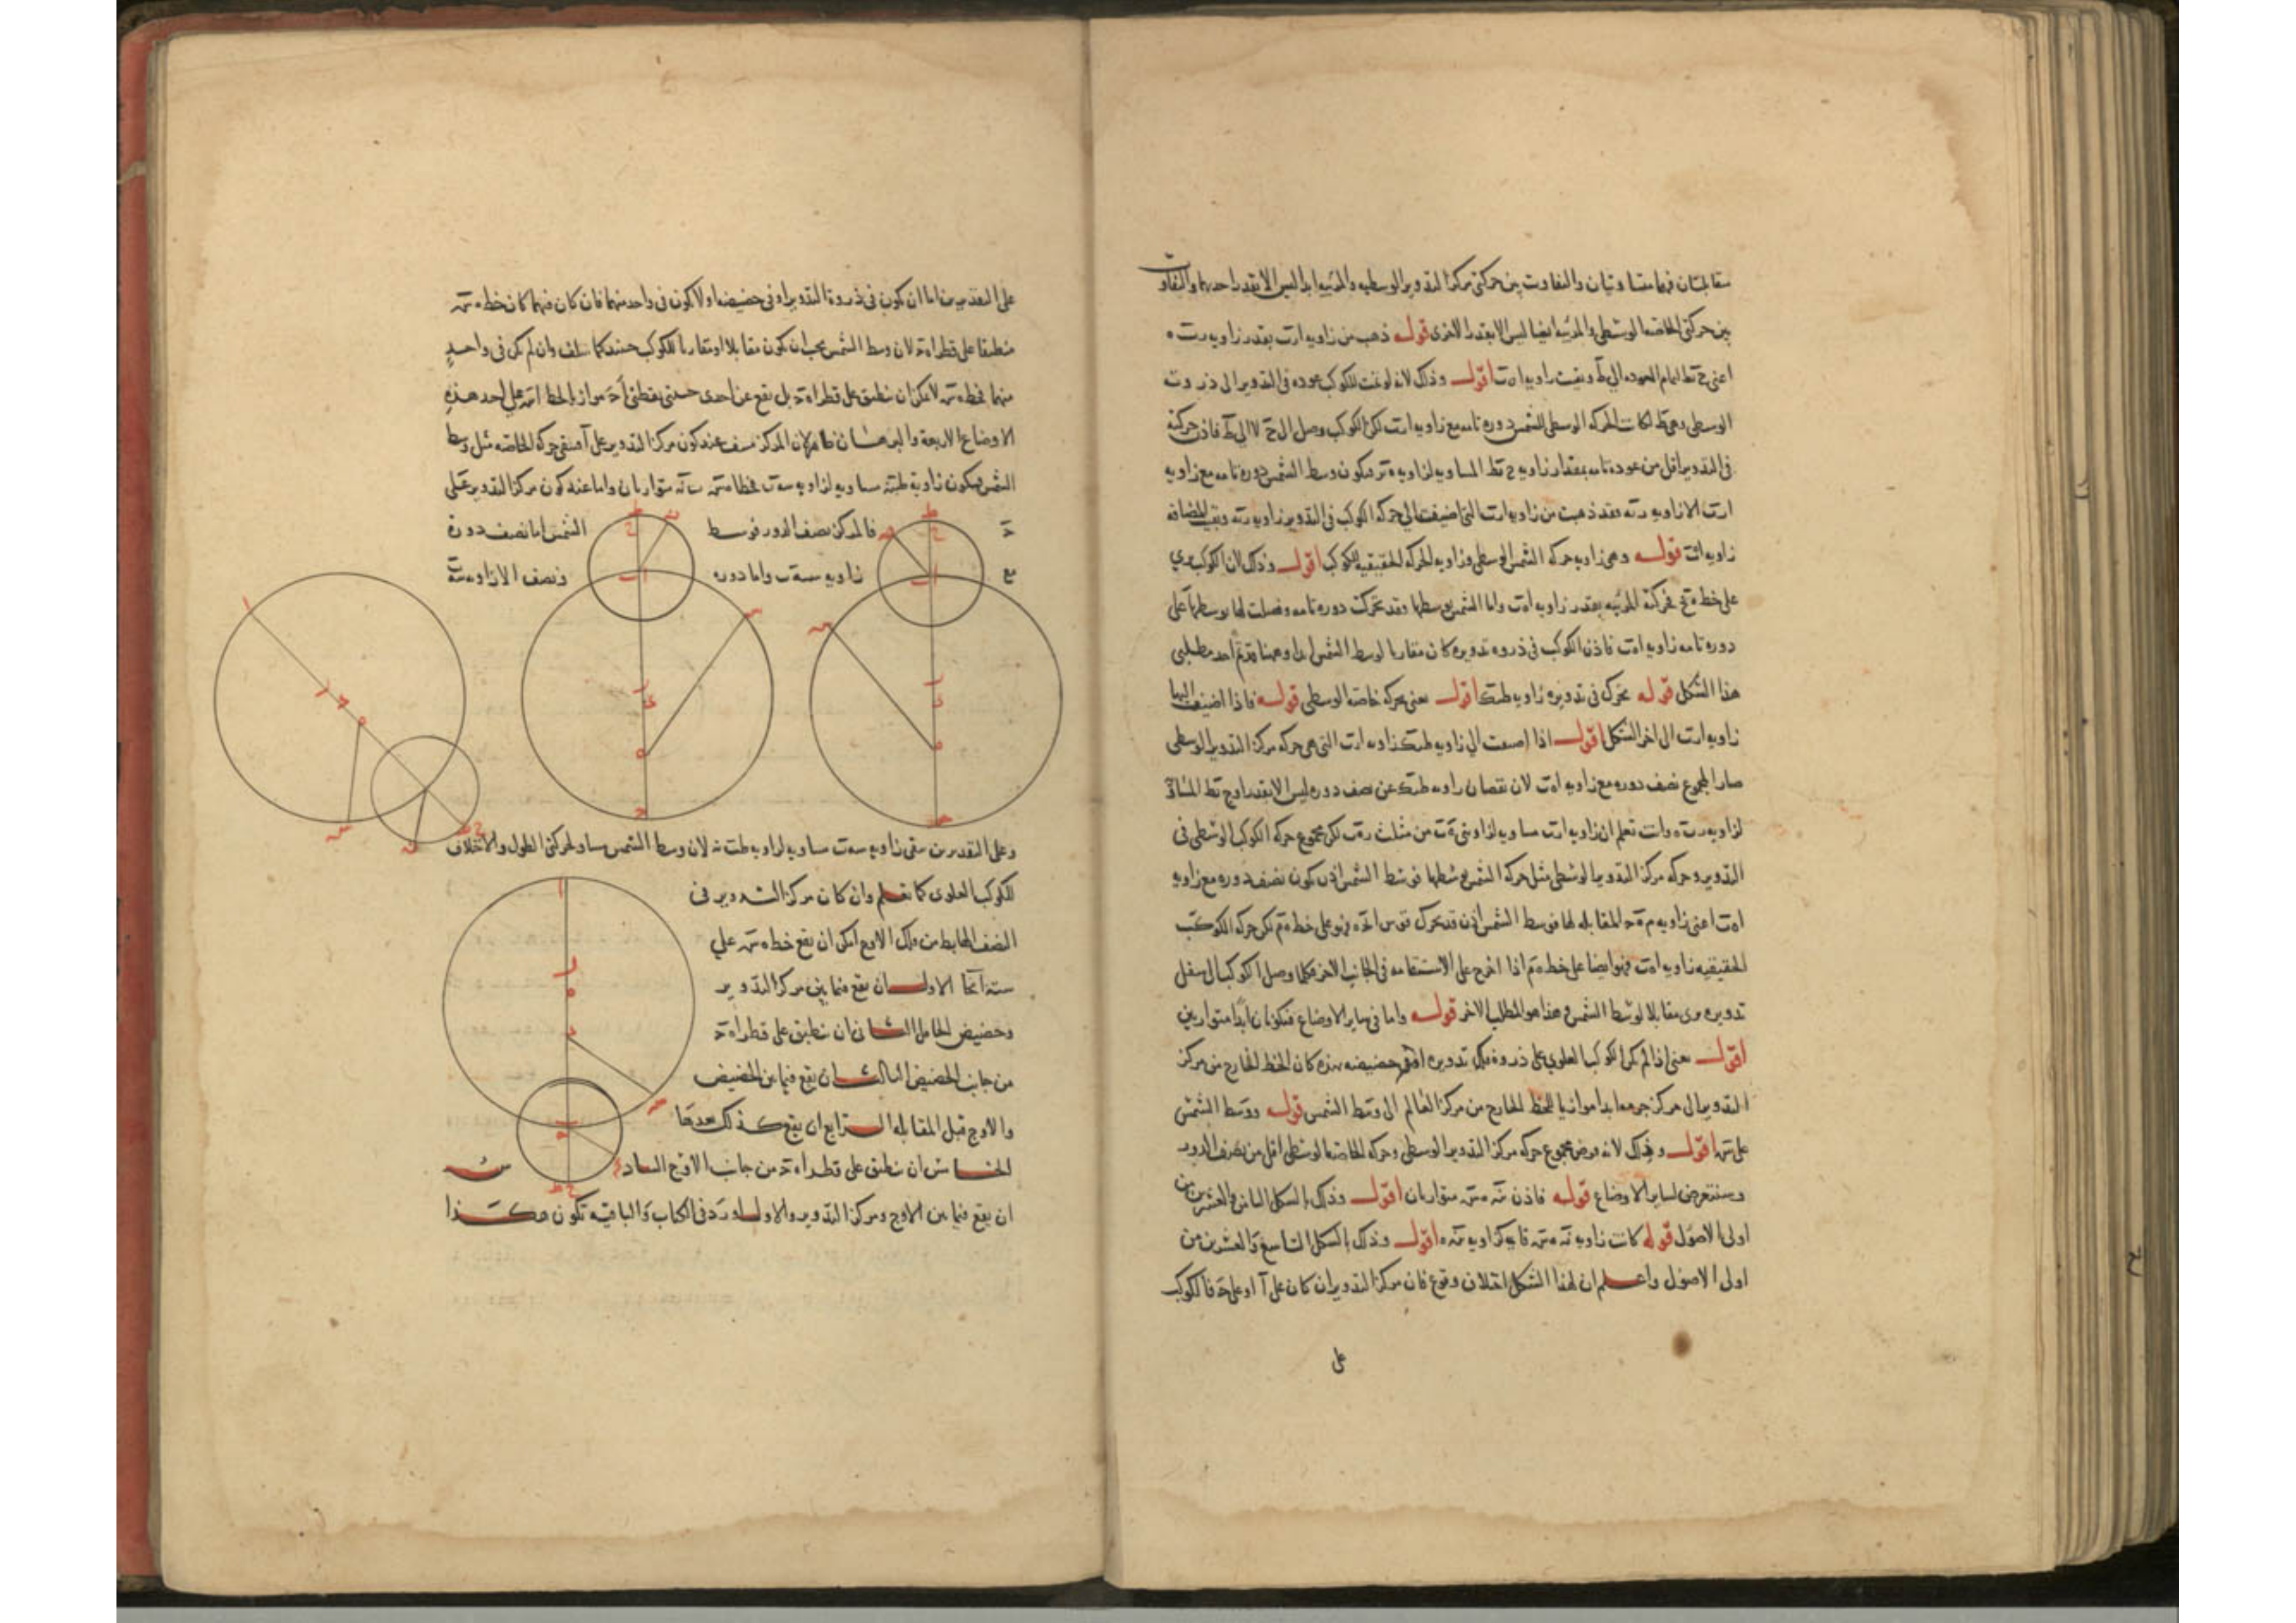 متقابلتان فهما متساويتان والتفاوت بين حركتي مركز التدوير الوسطيه والمرئيه ابدا ليس الا بقدر احدهما والتفاوت
بين حركتي الخاصة الوسطي والمرئيه ايضا ليس الا بقدر الاخرى قوله ذهب من زاويه ارت بقدر زاويه رت ه
اعني ح تط اتمام العوده الى ط وبقيت زاويه اه ت اقول وذلك لانه لو تمت للكوكب عوده في التدوير الى ذروته
الوسطى وهي ط لكانت الحركه الوسطى للشمس دوره تامه مع زاويه ارت لكن الكوكب وصل الى ح لا الى ط فاذن حركته
في التدوير اقل من عوده تامه بمقدار زاويه ح تط المساويه لزاويه ه تر فيكون وسط الشمس دوره تامه مع زاويه
ارت الا زاويه رته فقد ذهبت من زاويه ارت التي اضيفت الى حركه الكوكب في التدوير زاويه رته وبقيت المضافه
زاويه اهت قوله وهي زاويه حركه الشمس الوسطى وزاويه الحركه الحقيقيه للكوكب اقول وذلك لان الكوكب يرى
على خط ه تح فحركته المرئيه بقدر زاويه اه ت واما الشمس بوسطها وقد تحركت دوره تامه وفضلت لها بوسطها على
دوره تامه زاويه اه ت فاذن الكوكب في ذروه تدويره كان مقارنا لوسط الشمس ابدا وههنا قد تم احد مطلبي
هذا الشكل قوله تحرك في تدويره زاويه طتك اقول يعني بحركه خاصته الوسطى قوله فاذا اضيف اليها
زاويه ارت الى اخر الشكل اقول اذا اضيفت الى زاويه طتك زاويه ارت التي هي حركه مركز التدوير الوسطى
صار المجموع نصف دوره مع زاويه اه ت لان نقصان زاويه طتك عن نصف دوره ليس الا بقدر زاويه ح تط المساويه
لزاويه رت ه وانت تعلم ان زاويه ارت مساويه لزاويتي من مثلث ره ت لكن مجموع حركه الكوكب الوسطى في
التدوير وحركه مركز التدوير الوسطى مثل حركه الشمس بوسطها فوسط الشمس اذن يكون نصف دوره مع زاويه
اه ت اعني زاويه م ه ح المقابله لها فوسط الشمس اذن قد تحرك قوس فهو على خط ه م لكن حركه الكوكب
الحقيقيه زاويه اه ت فهو ايضا على خط ه م اذا اخرج على الاستقامه في الجانب الاخر فكلما وصل الكوكب الى اسفل
تدويره يرى مقابلا لوسط الشمس وهذا هو المطلب الاخر قوله واما في ساير الاوضاع فيكونان ابدا متوازيين
اقول يعني اذا لم يكن الكوكب العلوي على ذروة فلك تدويره او في حضيضه هذه كان الخط الخارج من مركز
التدوير الى مركز جرمه ابدا موازيا للخط الخارج من مركز العالم الى وسط الشمس قوله ووسط الشمس
على س اقول وذلك لانه فرض مجموع حركه مركز التدوير الوسطى وحركه الخاصه الوسطى اقل من نصف الدور
وسنتعرض لساير الاوضاع قوله فاذن ته ه س متوازيان اقول وذلك بالشكل الثامن والعشرين من
اولى الاصول قوله كانت زاويه اقول وذلك بالشكل التاسع والعشرين من
اولى الاصول واعلم ان لهذا الشكل اختلاف وقوع فان مركز التدوير ان كان على آ او على ح فالكوكب
على
على التقديرين اما ان يكون في ذروة التدوير او في حضيضه او لا يكون في واحد منهما فان كان فيهما كان خط ه س
منطبقا على قطر اه ح لان وسط الشمس يجب ان يكون مقابلا او مقارنا للكوكب حينئذ كما سلف وان لم يكن في واحد
منهما فخط ه س لا يمكن ان ينطبق على قطر اه ح بل يقع عن احدى جنبتي نقطتي على احد هذه
الاوضاع الاربعة والبرهان ظاهر لان المركز عند كون مركز التدوير على آ فتبقى حركه الخاصه مثل وسط
الشمس فيكون زاوية مساويه لزاويه متوازيان واما عند كون مركز التدوير على
ح فالمركز نصف الدور فوسط الشمس اما نصف دورة
مع زاويه واما دوره ونصف الا زاويه
وعلى التقديرين تبقى زاويه مساويه لزاويه لان وسط الشمس مساو لحركتي الطول والاختلاف
للكوكب العلوي كما تعلم وان كان مركز التدوير في
النصف الهابط من فلك الاوج امكن ان يقع خط ه س على
ستة انحا الاول ان يقع فيما بين مركز التدوير
وحضيض الحامل الثاني ان ينطبق على قطر اه ح
من جانب الحضيض الثالث ان يقع فيما بين الحضيض
والاوج قبل المقابله الرابع ان يقع كذلك بعدها
الخامس ان ينطبق على قطر اه ح من جانب الاوج السادس
ان يقع فيما بين الاوج ومركز التدوير والاول اورد في الكتاب والباقيه تكون هكذا